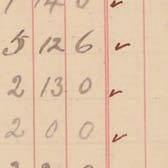 1 14 0 ✓
5 12 6 ✓
2 13 0 ✓
2 0 0 ✓